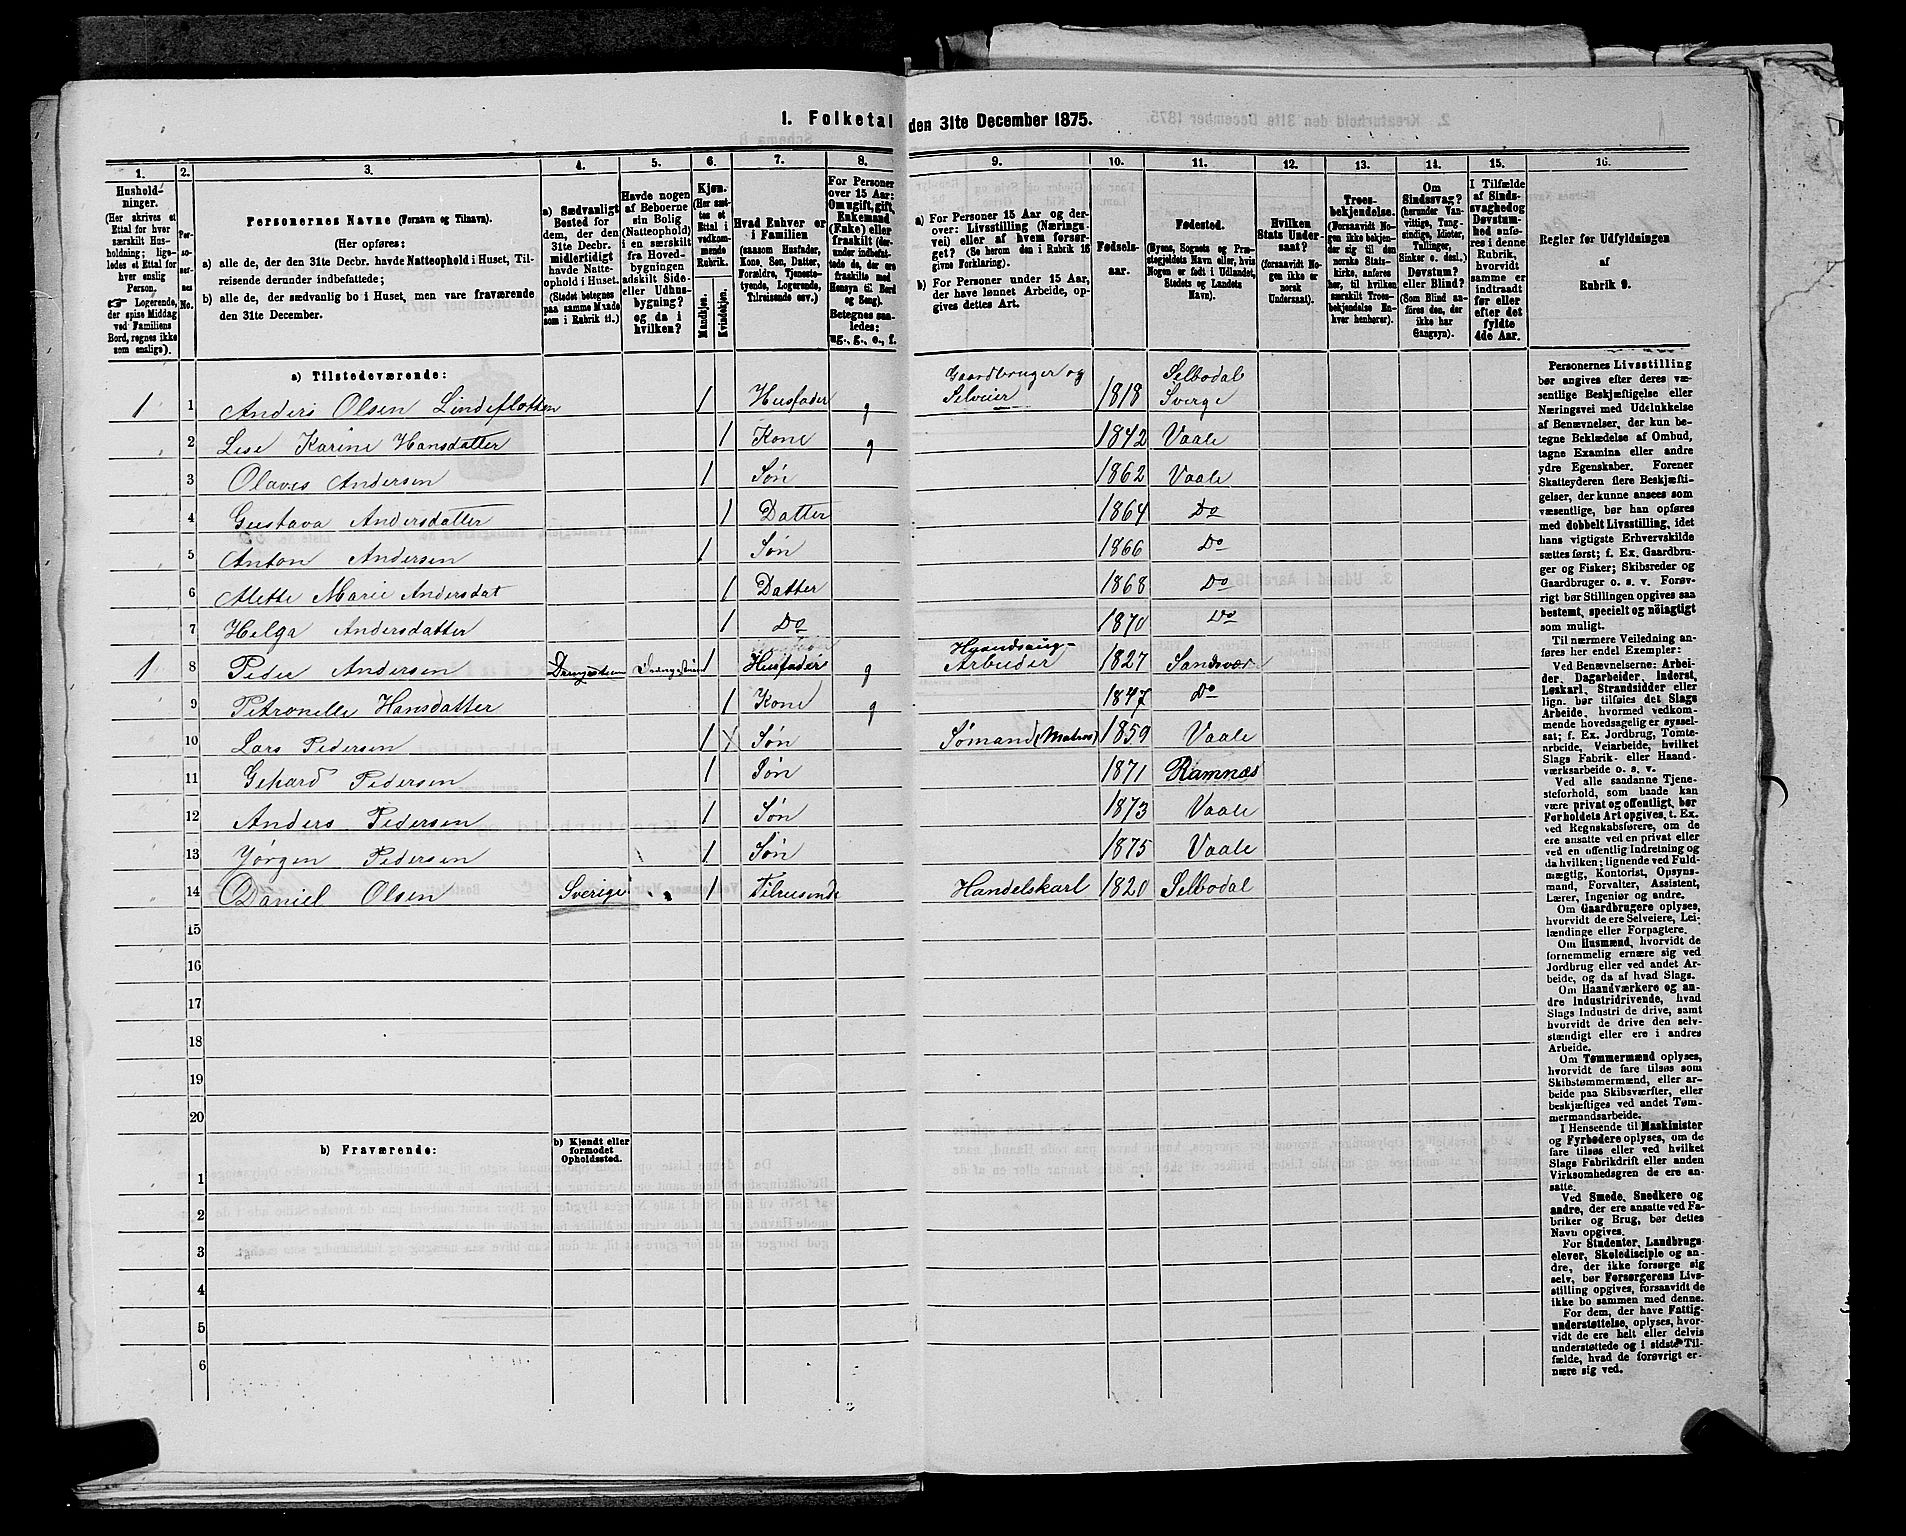 1. Folketal den 31te December 1875.
1. 2. 3. 4. 5. 6. 7. 8. 9. 10. 11. 12. 13. 14. 15. 16.
Hushold-
ninger.
(Her skrives et
Ettal for hver
særskilt Hus-
holdning; lige-
ledes et Ettal for
hver enslig
Person.
☞ Logerende,
der spise Middag
ved Familiens
Bord, regnes ikke
som enslige).
Per-
soner-
nes
No.
Personernes Navne (Fornavn og Tilnavn).
(Her opføres:
a) alle de, der den 31te Decbr. havde Natteophold i Huset, Til-
reisende derunder indbefattede;
b) alle de, der sædvanlig bo i Huset, men vare fraværende
den 31te December.
a) Sædvanligt
Bosted for
dem, der den
31te Decbr.
midlertidigt
havde Natte-
ophold i Huset.
(Stedet betegnes
paa samme Maade
som i Rubrik 11.)
Havde nogen
af Beboerne
sin Bolig
(Natteophold)
i en særskilt
fra Hoved-
bygningen
adskilt Side-
eller Udhus-
bygning?
og da i
hvilken?
Kjøn.
(Her sæt-
tes et
Ettal i
vedkom-
mende
Rubrik.
Mandkjøn.
Kvindekjøn.
Hvad Enhver er
i Familien
(saasom Husfader,
Kone, Søn, Datter,
Forældre, Tjeneste-
tyende, Logerende,
Tilreisende osv.)
For Personer
over 15 Aar:
Om ugift, gift,
Enkemand
(Enke) eller
fraskilt (der-
under indbefat-
tede de, der ere
fraskilte med
Hensyn til Bord
og Seng).
Betegnes saa-
ledes:
ug., g., e., f.
a) For Personer 15 Aar og der-
over: Livsstilling (Nærings-
vei) eller af hvem forsør-
get? (Se herom den i Rubrik 16
givne Forklaring).
b) For Personer under 15 Aar,
der have lønnet Arbeide, op-
gives dettes Art.
Fødsels-
aar.
Fødested.
(Byens, Sognets og Præ-
stegjeldets Navn eller, hvis
Nogen er født i Udlandet,
Stedets og Landets
Navn).
Hvilken
Stats Under-
saat?
(forsaavidt No-
gen ikke er
norsk
Undersaat).
Troes-
bekjendelse.
(Forsaavidt No-
gen ikke bekjen-
der sig til den
norske Stats-
kirke, anføres
her, til hvilken
særskilt Troes-
bekjendelse En-
hver henhører).
Om
Sindssvag?
(herunder Van-
vittige, Tung-
sindige, Idioter,
Tullinger,
Sinker o. desl.)
Døvstum?
eller Blind?
(Som Blind an-
føres den, der
ikke har
Gangsyn).
I Tilfælde
af Sinds-
svaghed og
Døvstum-
hed anfø-
res i denne
Rubrik,
hvorvidt
samme er
indtraadt
før eller
efter det
fyldte
4de Aar.
Regler før Udfyldningen
af
Rubrik 9.
a) Tilstedeværende:
1 1 Anders Olsen Lindefløtten 1 Husfader g Gaardbruger og Selveier 1818 Selbodal Sverge
2 Lise Karine Hansdatter 1 Kone g 1842 Vaale
3 Olaves Andersen 1 Søn 1862 Vaale
4 Gustava Andersdatter 1 Datter 1864 Do
5 Anton Andersen 1 Søn 1866 Do
6 Alette Marie Andersdat 1 Datter 1868 Do
7 Helga Andersdatter 1 Do 1870 Do
1 8 Peder Andersen 1 Husfader g Arbeider 1827 Sandsvær
9 Petronelle Hansdatter 1 Kone g 1847 Do
10 Lars Pedersen 1 Søn Sømand (Matros) 1859 Vaale
11 Gehard Pedersen 1 Søn 1871 Ramnæs
12 Anders Pedersen 1 Søn 1873 Vaale
13 Jørgen Pedersen 1 Søn 1875 Vaale
14 Daniel Olsen Sverige 1 Tilreisende Handelskarl 1820 Selbodal
15
16
17
18
19
20
b) Fraværende:
b) Kjendt eller
formodet
Opholdssted.
1
2
3
4
5
6
Personernes Livsstilling
bør angives efter deres væ-
sentlige Beskjæftigelse eller
Næringsvei med Udelukkelse
af Benævnelser, der kun be-
tegne Beklædelse af Ombud,
tagne Examina eller andre
ydre Egenskaber. Forener
Skatteyderen flere Beskjæfti-
gelser, der kunne ansees som
væsentlige, bør han opføres
med dobbelt Livsstilling, idet
hans vigtigste Erhvervskilde
sættes først; f. Ex. Gaardbru-
ger og Fisker; Skibsreder og
Gaardbruger o. s. v. Forøv-
rigt bør Stillingen opgives saa
bestemt, specielt og nöiagtigt
som muligt.
Til nærmere Veiledning an-
føres her endel Exempler:
Ved Benævnelserne: Arbei-
der, Dagarbeider, Inderst,
Løskarl, Strandsidder eller
lign. bør tilføies det Slags
Arbeide, hvormed vedkom-
mende hovedsagelig er syssel-
sat; f. Ex. Jordbrug, Tomte-
arbeide, Veiarbeide, hvilket
Slags Fabrik- eller Haand-
værksarbeide o. s. v.
Ved alle saadanne Tjene-
steforhold, som baade kan
være privat og offentligt, bør
Forholdets Art opgives, t. Ex.
ved Regnskabsførere, om de
ere ansatte ved en privat eller
ved en offentlig Indretning og
da hvilken; lignende ved Fuld-
mægtig, Kontorist, Opsyns-
mand, Forvalter, Assistent,
Lærer, Ingeniør og andre.
Om Gaardbrugere oplyses,
hvorvidt de ere Selveiere, Lei-
lændinge eller Forpagtere.
Om Husmænd, hvorvidt de
fornemmelig ernære sig ved
Jordbrug eller ved andet Ar-
beide, og da af hvad Slags.
Om Haandværkere og an-
dre Industridrivende, hvad
Slags Industri de drive, samt
hvorvidt de drive den selv-
stændigt eller ere i andres
Arbeide.
Om Tømmermænd oplyses,
hvorvidt de fare tilsøs som
Skibstømmermænd, eller ar-
beide paa Skibsværfter, eller
beskjæftiges ved andet Tøm-
mermandsarbeide.
I Henseende til Maskinister
og Fyrbødere oplyses, om de
fare tilsøs eller ved hvilket
Slags Fabrikdrift eller anden
Virksomhedsgren de ere an-
satte.
Ved Smede, Snedkere og
andre, der ere ansatte ved Fa-
briker og Brug, bør dettes
Navn opgives.
For Studenter, Landbrugs-
elever, Skoledisciple og an-
dre, der ikke forsørge sig
selv, bør Forsørgerens Livs-
stilling opgives, forsaavidt de
ikke bo sammen med denne.
For dem, der have Fattig-
understøttelse, oplyses, hvor-
vidt de ere helt eller delvis
understøttede og i sidste Til-
fælde, hvad de forøvrigt er-
nære sig ved.